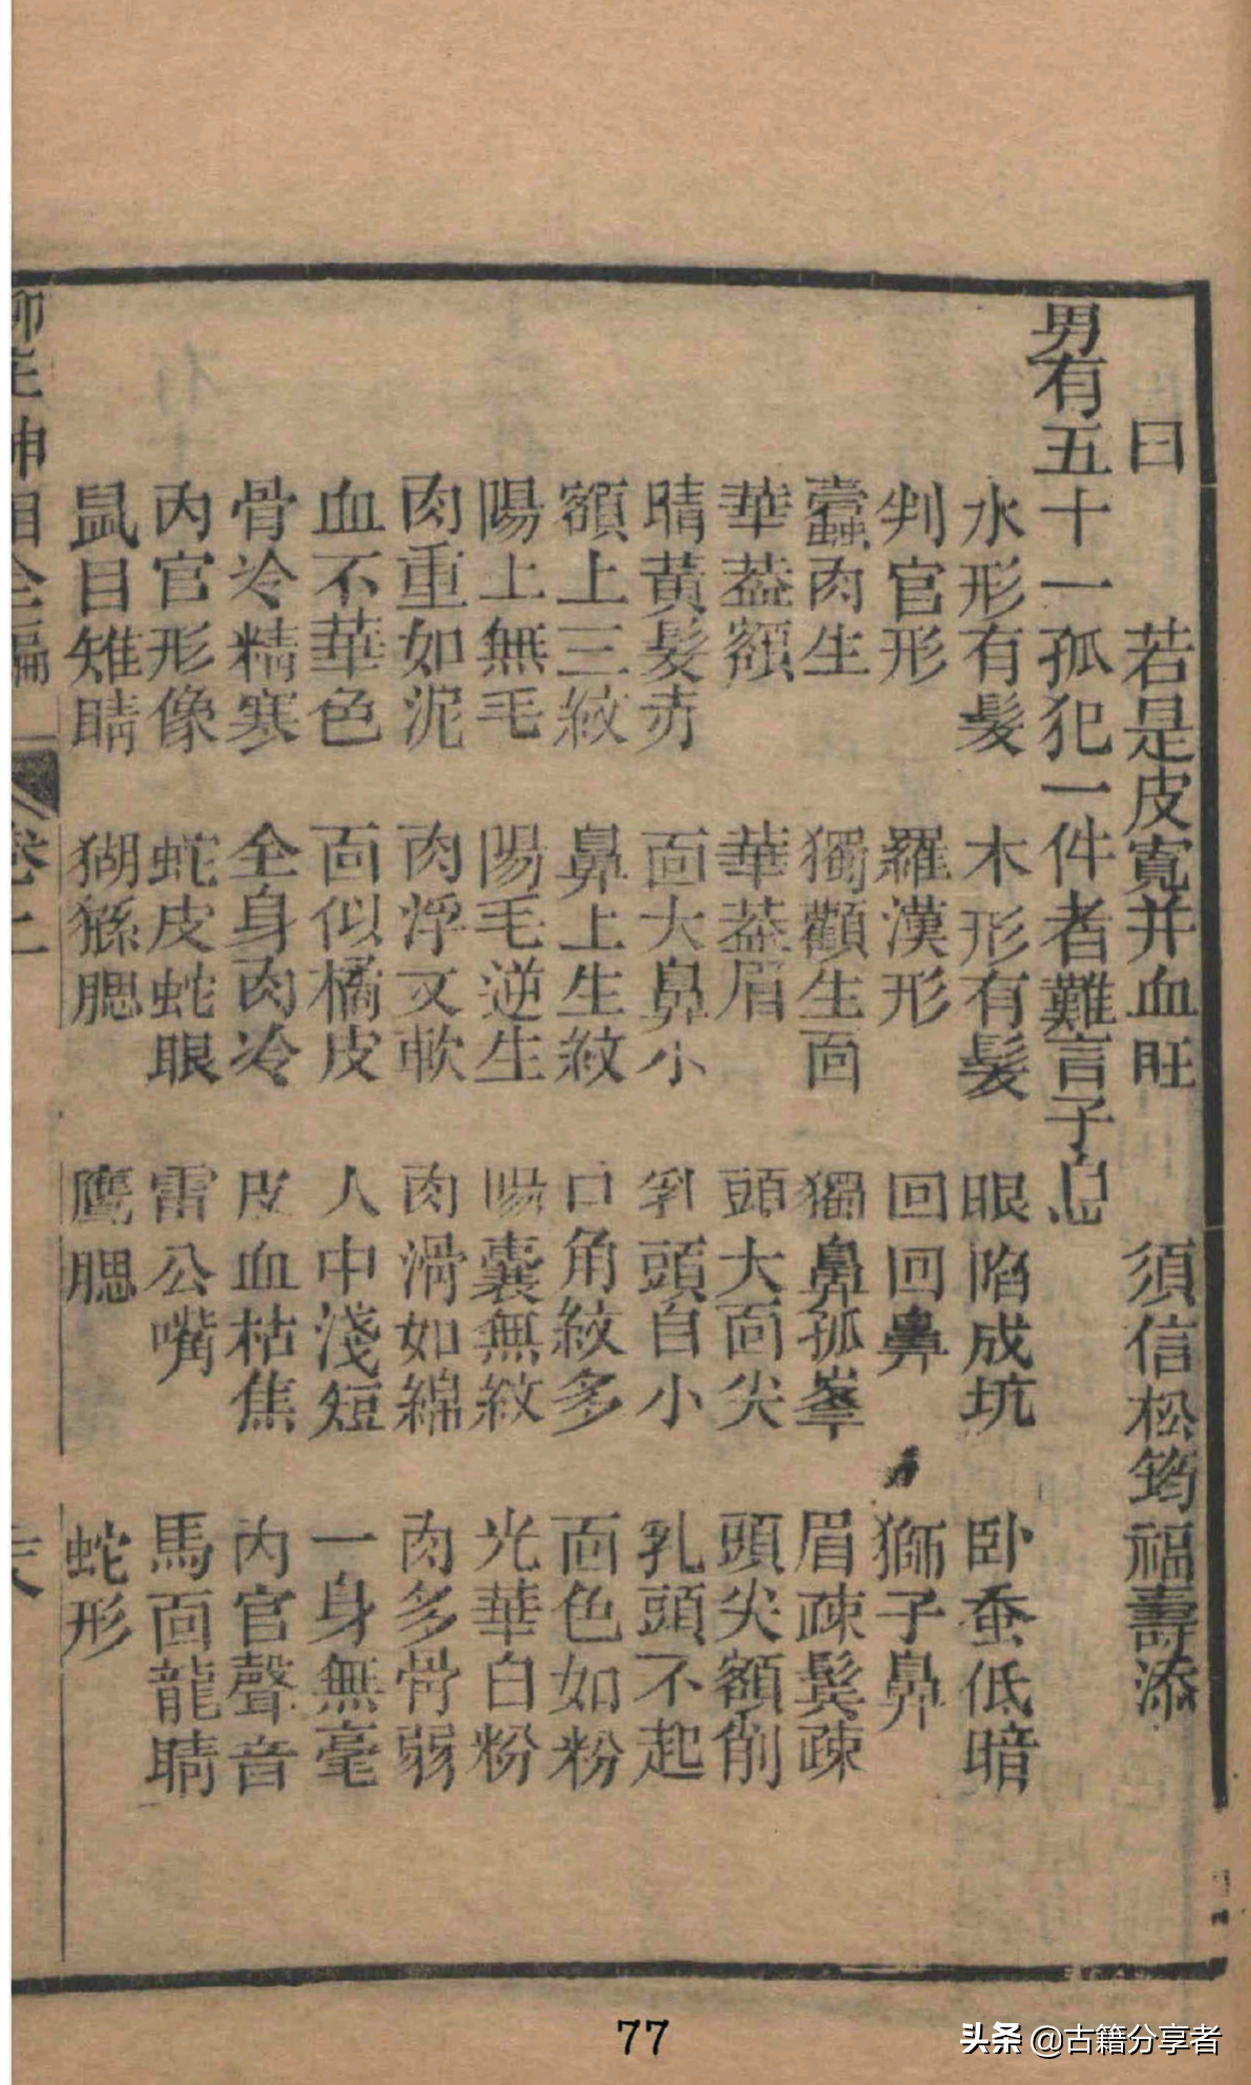 曰　若是皮寬并血旺　須信松筠福壽添
男有五十一孤犯一件者難言子息
水形有髮　木形有髮　眼陷成坑　卧蚕低暗
判官形　羅漢形　回回鼻　獅子鼻
蠹肉生　獨顴生面　獨鼻孤峯　眉疎鬂疎
華葢額　華葢眉　頭大面尖　頭尖額削
睛黃髮赤　面大鼻小　乳頭自小　乳頭不起
額上三紋　鼻上生紋　口角紋多　面色如粉
陽上無毛　陽毛逆生　陽囊無紋　光華白粉
肉重如泥　肉浮又軟　肉滑如綿　肉多骨弱
血不華色　面似橘皮　人中淺短　一身無毫
骨冷精寒　全身肉冷　皮血枯焦　內官聲音
內官形像　蛇皮蛇眼　雷公嘴　馬面龍睛
鼠目雉睛　猢猻腮　鷹腮　蛇形
柳庄神相全編　卷上
77
头条 @古籍分享者